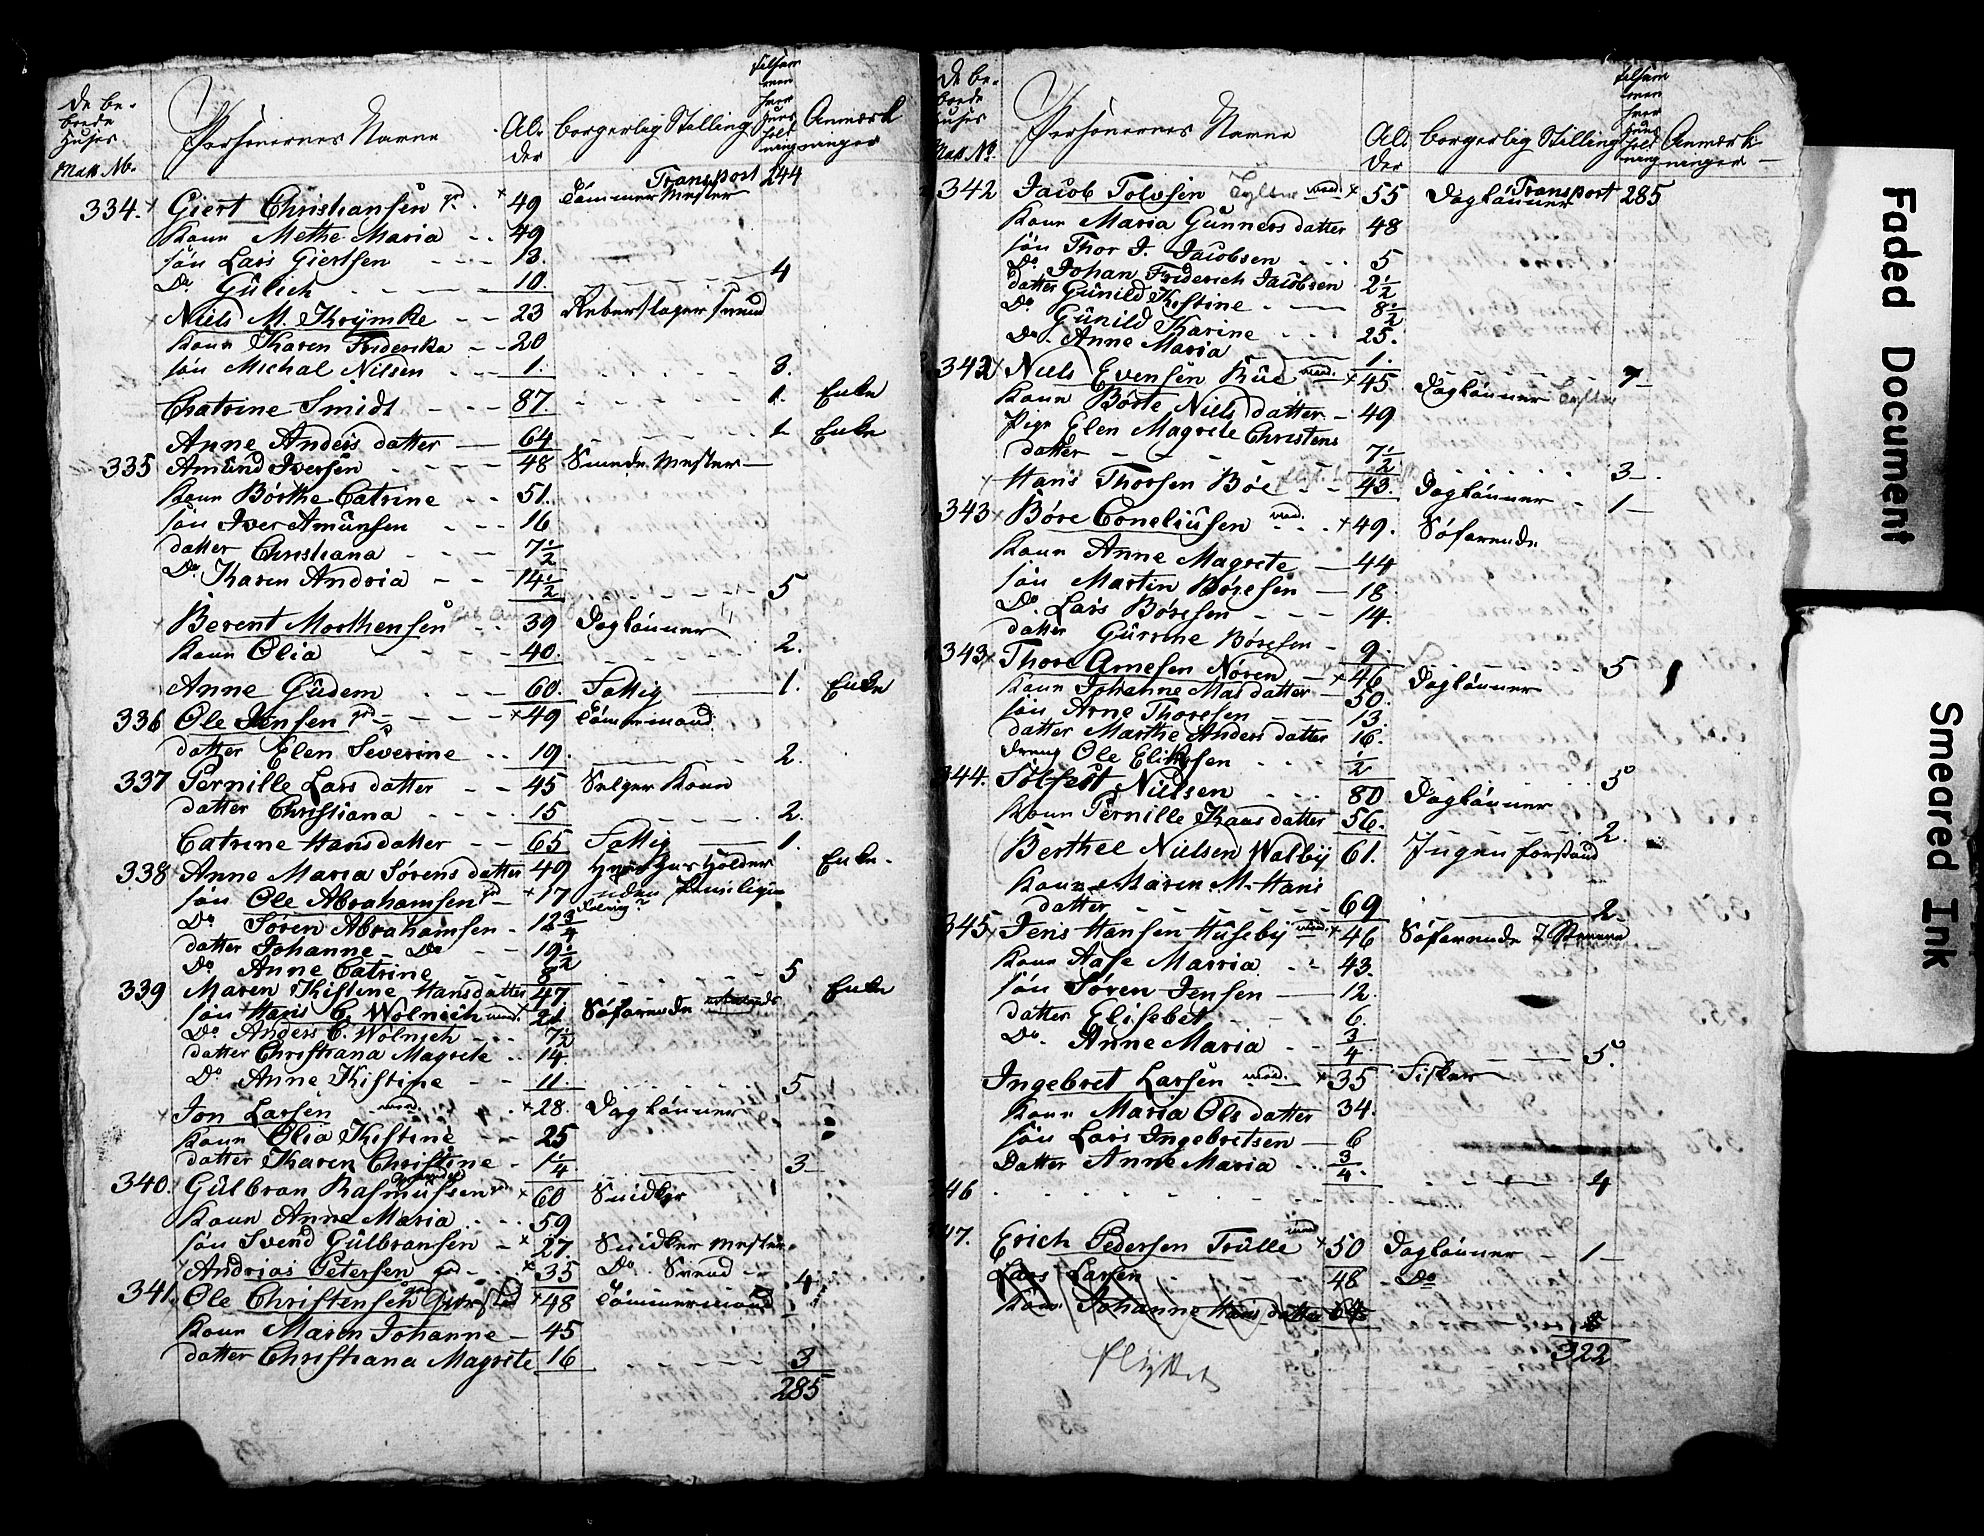 De be-
boede
Huses
Matr No.
Personernes Navne
Al-
der
borgerlig Stilling
tilsam
men
hver
Huus
hold
ning
Anmærk
ninger
Transport 244
334. Giert Christiansen 49 Tömmer Mester
Kone Methe Maria 49
sön Lars Giertsen 13.
Do. Gülich 10. 4
Niels M. Krÿmke 23 Rebeslager svend
Kone Karen Frederika 20
sön Michal Nilsen 1. 3.
Chatrine Smidt 87. 1. Enke
Anne Anders datter 64 1 Enke
335 Amünd Iversen 48 Smede Mester
Kone Börthe Catrine 51.
sön Iver Amünsen 16
datter Christiana 7½
Do. Karen Andria 14½ 5
Berent Morthensen 39 Daglönner
Kone Olia 40. 2.
Anne Güdem 60. Fattig 1. Enke
336 Ole Jensen 49 Tömmermand
datter Elen Severine 19. 2.
337 Pernille Lars datter 45 Selger Kone
datter Christiana 15 2.
Catrine Hansdatter 65 Fattig 1.
338 Anne Maria Sörens datter 49 Huusholder Enke.
sön Ole Abrahamsen 17 uden
Do Sören Abrahamsen 12¾
datter Johanne Do 19½
Do Anne Catrine 8 5
339 Maren Kistine Hansdatter 47. Enke
sön Hans C. Wölnich 21 Söfarende
Do. Anders C. Wölnich 7½
datter Christiana Magrete 14
Do Anne Kistine 11. 5
Jon Larsen 28. Daglönner
Kone Olia Kistine 25
datter Karen Christine 1¼ 3
340. Gülbran Rasmüssen 60 Snidker
Kone Anne Maria 59
sön Svend Gülbransen 27. Snidker mester
Andrias Petersen 35 Do. Svend 4
341. Ole Christensen 48 Tömmermand
Kone Maren Johanne 45
datter Christiana Magrete 16 3
285
De be-
boede
Huses
Matr No
Personernes Navne
Al
der
borgerlig Stilling
tilsam
men
hver
Huus
hold
ning
Anmærk
ninger
Transport 285
342 Jacob Tolvsen 55 Daglönner
Kone Maria Gunners datter 48
sön Thor J. Jacobsen 5
Do Johan Friderich Jacobsen 2½
datter Günild Kistine 8½
Do. Günild Karine 25.
Do. Anne Maria 1. 7
342 Niels Evensen 45 Daglönner
Kone Börte Niels datter 49
Pige Elen Magrete Christens
datter 7½ 3
Hans Thorsen Böe 43. Daglönner 1
343 Böre Corneliüsen 49. Söfarende
Kone Anne Magrete 44
sön Martin Böresen 18
Do. Lars Böresen 14.
datter Gürrine Böresen 9. 5
343 Thore Arnesen Nören 46 Daglönner
Kone Johanne Mas datter 50.
sön Arne Thoresen 13.
datter Marthe Anders datter 16.
dreng Ole Eliksen ½ 5
344. Solfest Nielsen 80 Daglönner
Kone Pernille Klaus datter 56. 2.
Berthel Nielsen Walbÿ 61. Jngen forstand
Kone Maren M. Hans
datter 69 2
345 Jens Hansen Hüsebÿ 46 Söfarende
Kone Aase Marria 43.
sön Sören Jensen 12.
datter Elisebet 6.
Do. Anne Maria ¾ 5
Ingebret Larsen 35 Fisker
Kone Maria Ols datter 34.
sön Lars Ingebretsen 6
Datter Anne Maria ¾ 4
46
47. Erich Pedersen Trülle 50 Daglönner 1
Lars Larsen 48 Do
Kone Johanne Hans datter 64
322
flyttet
Faded Document
Smeared Ink